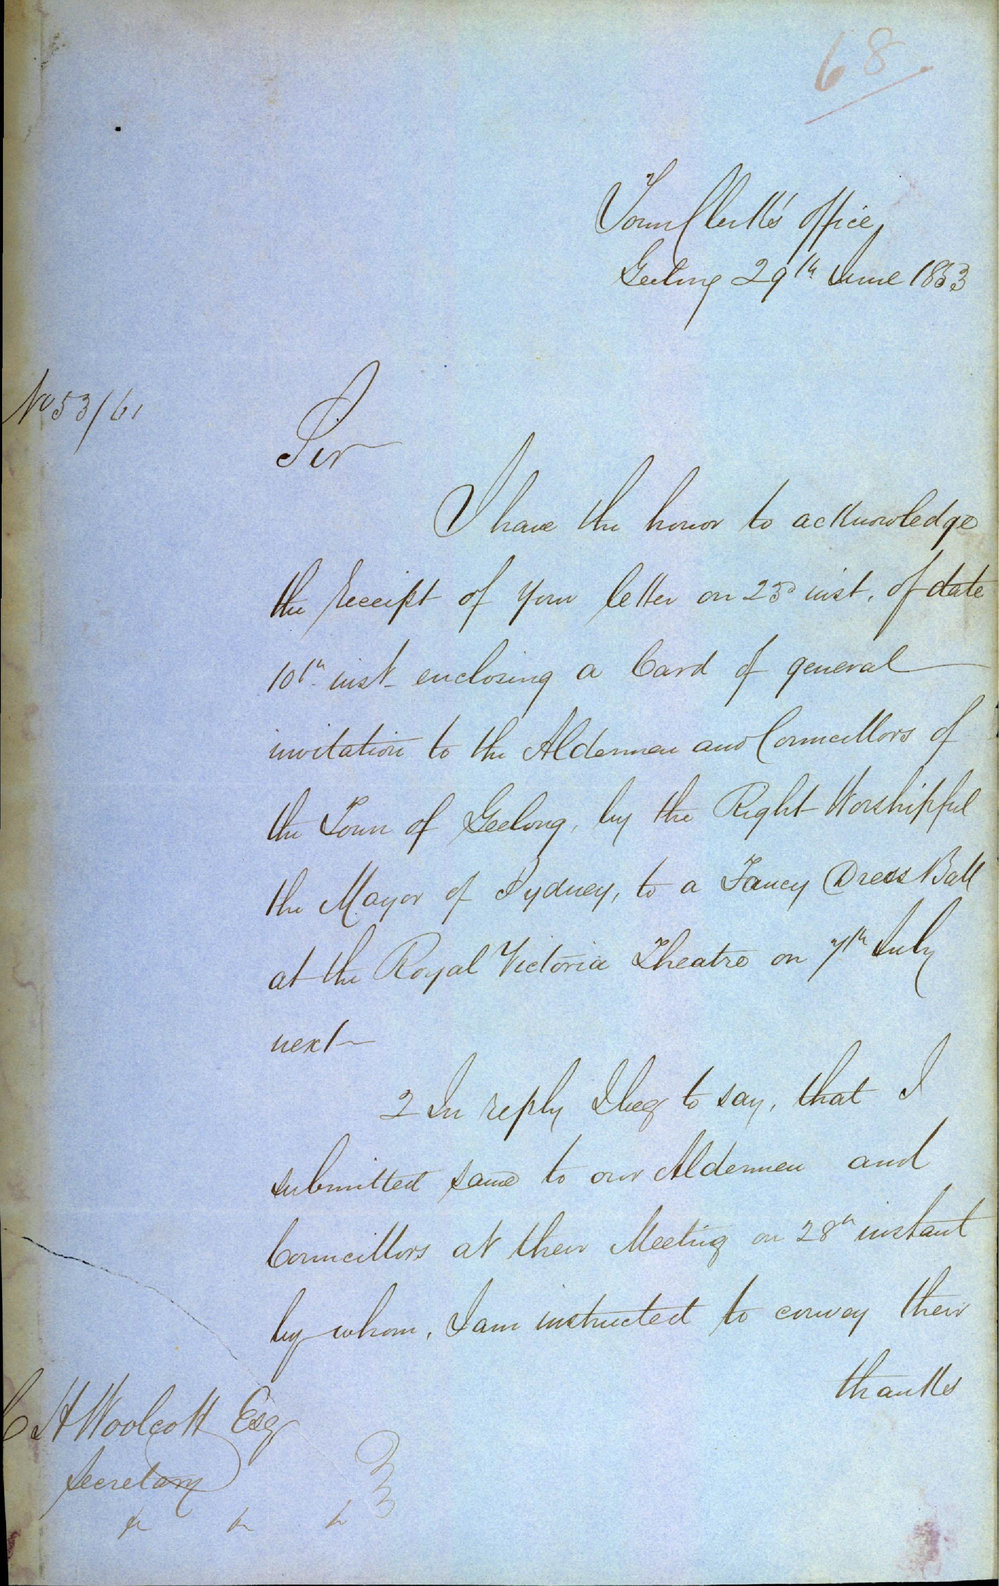 68.
Town Clerk's office,
Geelong 29th June 1853
No 53/61
Sir
I have the honor to acknowledge
the receipt of your letter on 23d inst. of date
10th inst enclosing a Card of general
invitation to the Aldermen and Councillors of
the Town of Geelong, by the Right Worshipful
the Mayor of Sydney, to a Fancy Dress Ball
at the Royal Victoria Theatre on 7th July
next
2 In reply I beg to say, that I
submitted same to our Aldermen and
Councillors at their Meeting on 28th instant
by whom, I am instructed to convey their
thanks
C H Woolcott Esq
Secretary